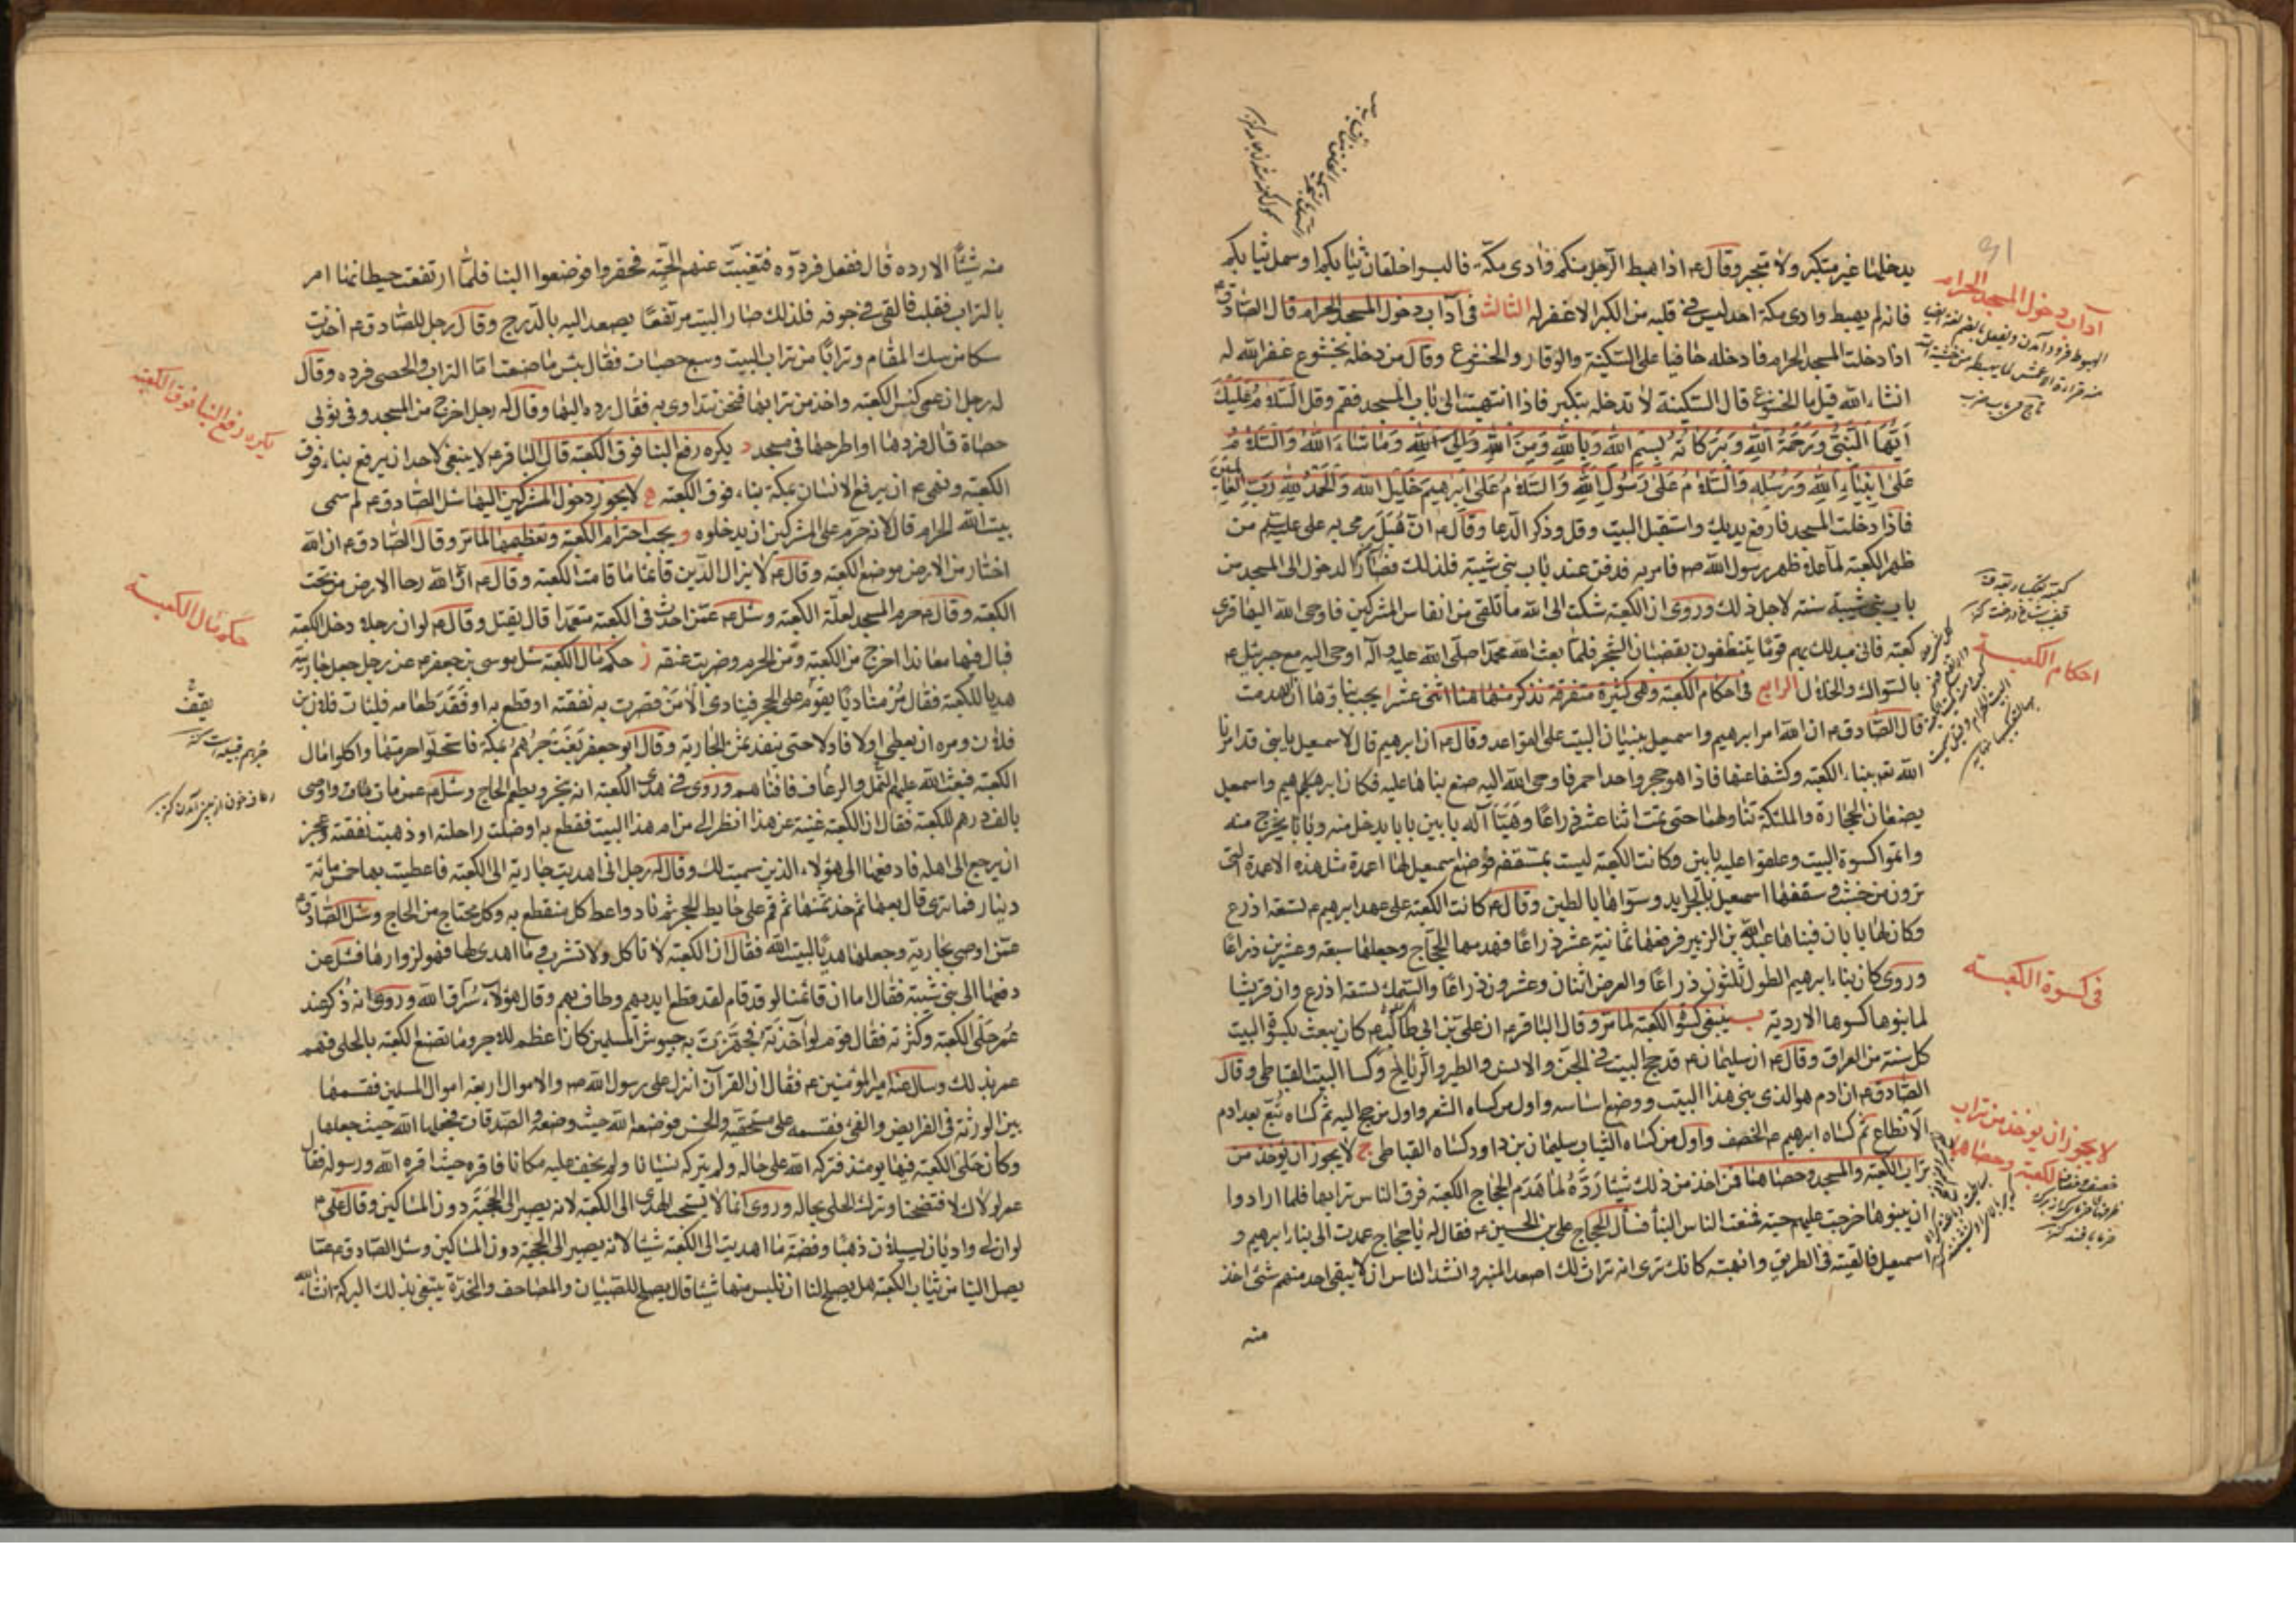 يدخلها غير متكبر ولا متجبر وقال ع اذا هبط الرجل منكم وادى مكة فالبسوا خلقان ثيابكم او سمل ثيابكم
فانه لم يهبط وادى مكة احد ليس في قلبه من الكبر الا غفر له الثالث في آداب دخول المسجد الحرام قال الصادق ع
اذا دخلت المسجد الحرام فادخله حافيا على السكينة والوقار والخشوع وقال من دخله بخشوع غفر الله له
انشاء الله قيل ما الخشوع قال السكينة لا تدخله بتكبر فاذا انتهيت الى باب المسجد فقم وقل السلام عليك
ايها النبي ورحمة الله وبركاته بسم الله وبالله ومن الله والى الله وما شاء الله والسلام
على انبياء الله ورسله والسلام على رسول الله والسلام على ابرهيم خليل الله والحمد لله رب العالمين
فاذا دخلت المسجد فارفع يديك واستقبل البيت وقل وذكر الدعا وقال ع ان هبل رمى به على ع من
ظهر الكعبة لما علا ظهر رسول الله ص فامر به فدفن عند باب بنى شيبة فلذلك فصار الدخول الى المسجد من
باب بنى شيبة سنة لاجل ذلك وروى ان الكعبة شكت الى الله ما تلقى من انفاس المشركين فاوحى الله اليها قرى
كعبة فانى مبدلك بهم قوما يتنظفون بقضبان الشجر فلما بعث الله محمدا صلى الله عليه وآله اوحى اليه مع جبرئيل ع
بالسواك والخلال الرابع في احكام الكعبة وهي كثيرة متفرقة نذكر منها هنا اثنى عشر ا يجب بناؤها ان انهدمت
قال الصادق ع ان الله امر ابرهيم واسمعيل ببنيان البيت على القواعد وقال ع ان ابرهيم قال لاسمعيل يا بنى قد امرنا
الله تع ببناء الكعبة وكشفا عنها فاذا هو حجر واحد احمر فاوحى الله اليه ضع بناها عليه فكان ابرهيم واسمعيل
يضعان الحجارة والملئكة تناولهما حتى تمت اثنا عشر ذراعا وهيئا له بابين بابا يدخل منه وبابا يخرج منه
واتموا كسوة البيت وعلقوا عليه بابين وكانت الكعبة ليست بمسقفة فوضع اسمعيل لها اعمدة مثل هذه الاعمدة التى
ترون من خشب وسقفها اسمعيل بالجرايد وسواها بالطين وقال ع كانت الكعبة على عهد ابرهيم ع تسعة اذرع
وكان لها بابان فبناها عبد الله بن الزبير فرفعها ثمانية عشر ذراعا فهدمها الحجاج وجعلها سبعة وعشرين ذراعا
وروى كان بناء ابرهيم الطول ثلثون ذراعا والعرض اثنان وعشرون ذراعا والسمك تسعة اذرع وان قريشا
لما بنوها كسوها الاردية ب ينبغى كسوة الكعبة لما مر وقال الباقر ع ان على بن ابى طالب ع كان يبعث بكسوة البيت
كل سنة من العراق وقال ع ان سليمان ع قد حج البيت في الجن والانس والطير والرياح وكسا البيت القباطى وقال
الصادق ع ان ادم هو الذى بنى هذا البيت ووضع اساسه واول من كساه الشعر واول من حج اليه ثم كساه تبع بعد ادم
الانطاع ثم كساه ابرهيم ع الخصف واول من كساه الثياب سليمان بن داود كساه القباطى ج لا يجوز ان يؤخذ من
تراب الكعبة والمسجد وحصاها فمن اخذ من ذلك شيئا رده لما هدم الحجاج الكعبة فرق الناس ترابها فلما ارادوا
ان يبنوها خرجت عليهم حية فمنعت الناس البنأ فسأل الحجاج على بن الحسين ع فقال له يا حجاج عمدت الى بناء ابرهيم و
اسمعيل فالقيته في الطريق وانهبته كانك ترى انه تراث لك اصعد المنبر وانشد الناس ان لا يبقى احد منهم شئ اخذ
منه
آداب دخول المسجد الحرام
احكام الكعبة
فى كسوة الكعبة
لا يجوز ان يوخذ من تراب
الكعبة وحصاها
منه شيئا الا رده قال ففعل فردوه فتغيبت عنهم الحية فحفروا فوضعوا البنا فلما ارتفعت حيطانها امر
بالتراب فقلب فالقى في جوفه فلذلك صار البيت مرتفعا يصعد اليه بالدرج وقال رجل للصادق ع اخذت
سكا من سك المقام وترابا من تراب البيت وسبع حصيات فقال بئس ما صنعت اما التراب والحصى فرده وقال
له رجل ان عمى كنس الكعبة واخذ من ترابها فنحن نتداوى به فقال رده اليها وقال له رجل اخرج من المسجد وفى ثوبى
حصاة قال فردها او اطرحها في مسجد د يكره رفع البنا فوق الكعبة قال الباقر ع لا ينبغى لاحد ان يرفع بناء فوق
الكعبة ونهى ع ان يرفع الانسان بمكة بناء فوق الكعبة ه لا يجوز دخول المشركين اليها سئل الصادق ع لم سمى
بيت الله الحرام قال لانه حرم على المشركين ان يدخلوه و يجب احترام الكعبة وتعظيمها لما مر وقال الصادق ع ان الله
اختار من الارض موضع الكعبة وقال ع لا يزال الدين قائما ما قامت الكعبة وقال ع ان الله دحا الارض من تحت
الكعبة وقال ع حرم المسجد لعلة الكعبة وسئل ع عمن احدث في الكعبة متعمدا قال يقتل وقال ع لو ان رجلا دخل الكعبة
فبال فيها معاندا اخرج من الكعبة ومن الحرم وضربت عنقه ز حكم مال الكعبة سئل موسى بن جعفر ع عن رجل جعل جاريته
هديا للكعبة فقال مر مناديا يقوم على الحجر فينادى الا من قصرت به نفقته او قطع به او فقد طعامه فليئات فلان بن
فلان ومره ان يعطى اولا فاولا حتى ينفد ثمن الجارية وقال ابو جعفر بغت جرهم بمكة فاستحلوا حرمتها واكلوا مال
الكعبة فبعث الله عليهم النمل والرعاف فافناهم وروى في هدى الكعبة انه ينحر ويطعم الحاج وسئل ع عمن مات واوصى
بالف درهم للكعبة فقال ان الكعبة غنية عن هذا انظر الى من ام هذا البيت فقطع به او ضلت راحلته او ذهبت نفقته وعجز
ان يرجع الى اهله فادفعها الى هؤلاء الذين سميت لك وقال له رجل انى اهديت جارية الى الكعبة فاعطيت بها خمس مائة
دينار فما ترى قال بعها ثم خذ ثمنها ثم قم على حايط الحجر ثم ناد واعط كل منقطع به وكل محتاج من الحاج وسئل الصادق ع
عمن اوصى بجارية وجعلها هديا لبيت الله فقال ان الكعبة لا تاكل ولا تشرب وما اهدى لها فهو لزوارها فسئل عن
دفعها الى بنى شيبة فقال اما ان قائمنا لو قد قام لقد قطع ايديهم وطاف بهم وقال هؤلاء سراق الله وروى انه ذكر عند
عمر حلى الكعبة وكثرته فقال قوم لو اخذته فجهزت به جيوش المسلمين كان اعظم للاجر وما تصنع الكعبة بالحلى فهم
عمر بذلك وسال عنه امير المؤمنين ع فقال ان القرآن انزل على رسول الله ص والاموال اربعة اموال المسلمين فقسمها
بين الورثة في الفرايض والفئ فقسمه على مستحقيه والخمس فوضعه الله حيث وضعه والصدقات فجعلها الله حيث جعلها
وكان حلى الكعبة فيها يومئذ فتركه الله على حاله ولم يتركه نسيانا ولم يخف عليه مكانا فاقره حيث اقره الله ورسوله فقال
عمر لولاك لافتضحنا وترك الحلى بحاله وروى انما لا يستحب الهدى الى الكعبة لانه يصير الى الحجبة دون المساكين وقال على ع
لو ان لى واديان يسيلان ذهبا وفضة ما اهديت الى الكعبة شيئا لانه يصير الى الحجبة دون المساكين وسئل الصادق ع عما
يصل الينا من ثياب الكعبة هل يصلح لنا ان نلبس منها شيئا قال يصلح للصبيان والمصاحف والمخدة يبتغى بذلك البركة انشاء الله
يكره رفع البنا فوق الكعبة
حكم مال الكعبة